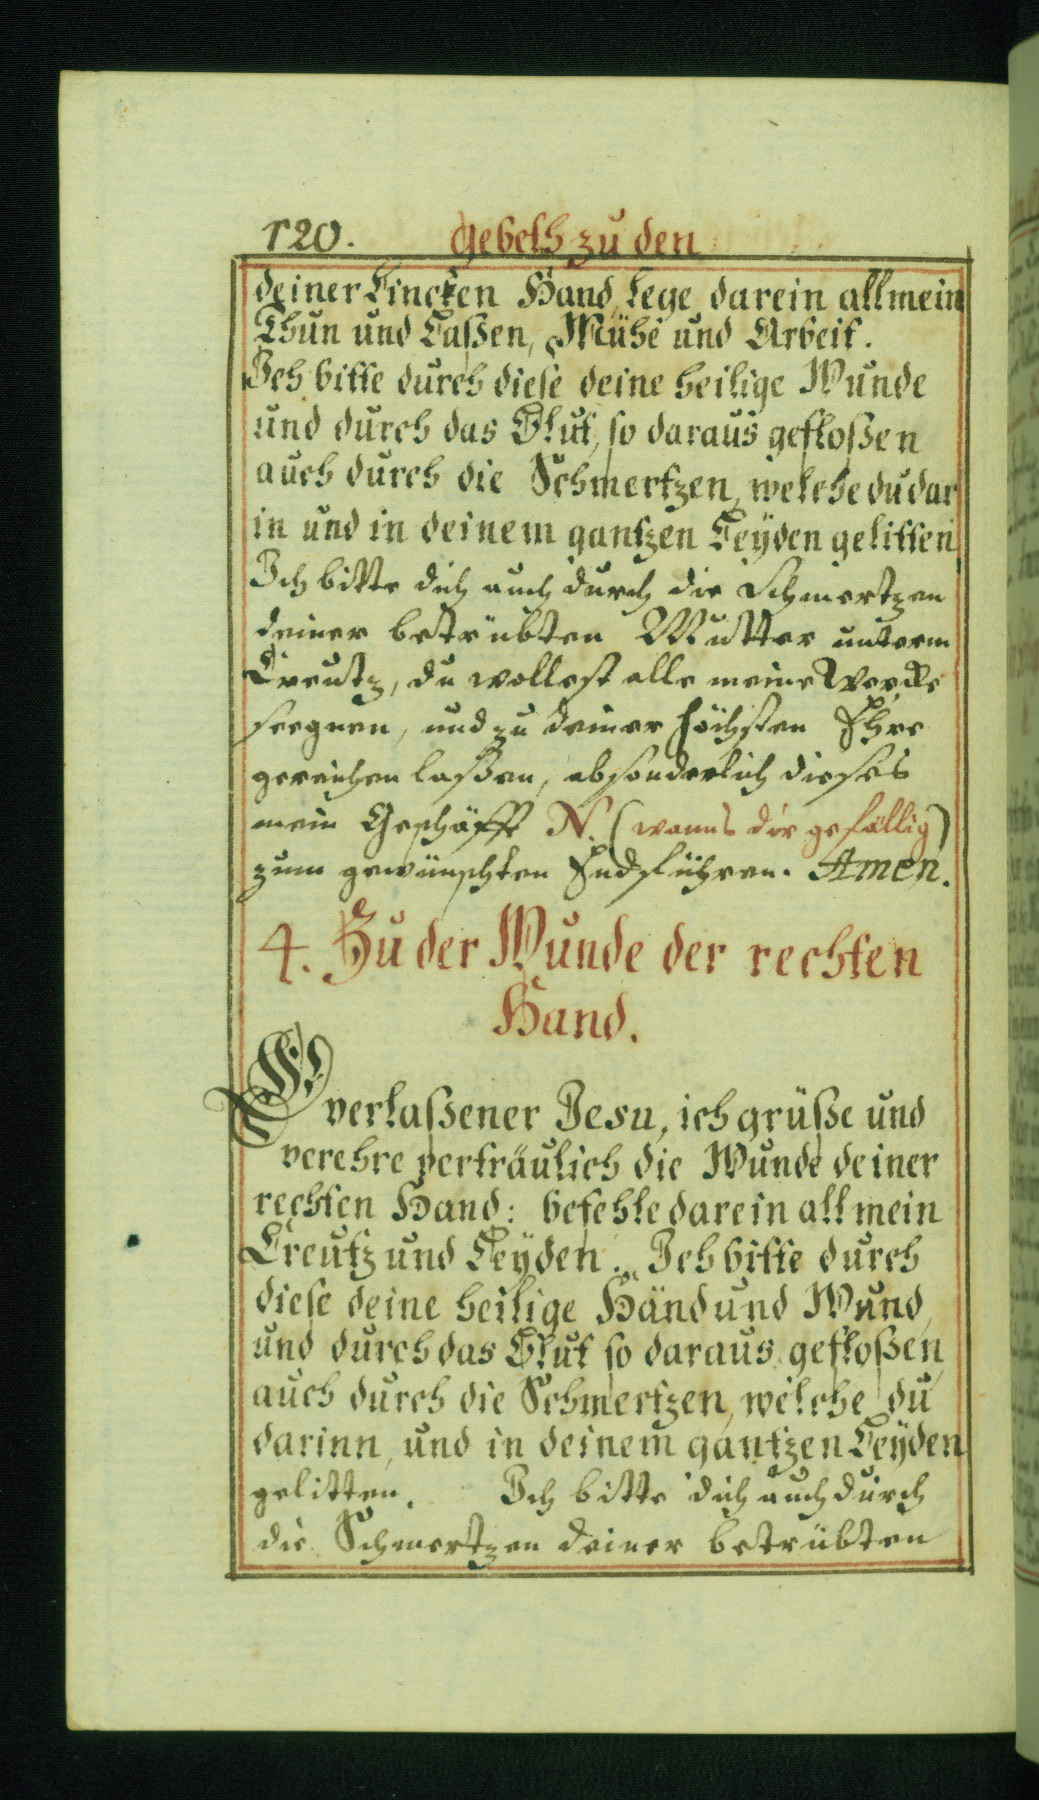 120. Gebeth zu den
deiner Lincken Hand, Lege darein all mein
Thun und Laßen, Mühe und Arbeit.
Ich bitte durch diese deine heilige Wunde
und durch das Blut, so daraus gefloßen
auch durch die Schmertzen, welche du dar
in und in deinem gantzen Leÿden gelitten
Ich bitte dich auch durch die Schmertzen
deiner betrübten Mutter unterm
Creutz, du wollest alle meine Wercke
seegnen, und zu deiner höchsten Ehre
gereichen laßen, absonderlich dieses
mein Geschäfft N. (wanns dir gefällig)
zum gewünschten End führen. Amen.
4. Zu der Wunde der rechten
Hand.
O verlaßener Jesu, ich grüße und
verehre verträulich die Wunde deiner
rechten Hand: befehle darein all mein
Creutz und Leÿden. Ich bitte durch
diese deine heilige Händ und Wund,
und durch das Blut so daraus gefloßen,
auch durch die Schmertzen, welche du
darinn, und in deinem gantzen Leÿden
gelitten. Ich bitte dich auch durch
die Schmertzen deiner betrübten